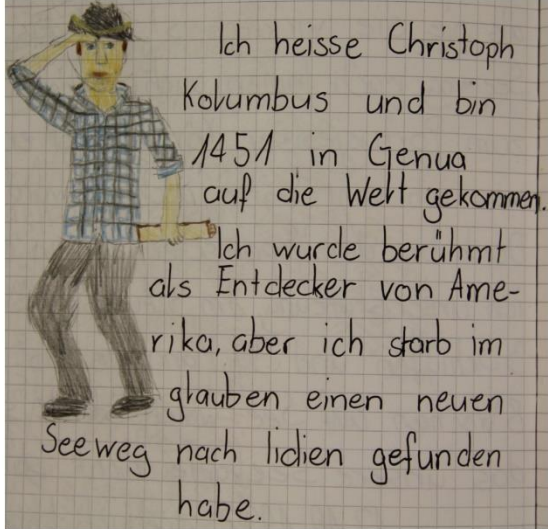 Ich heisse Christoph
Kolumbus und bin
1451 in Genua
auf die Welt gekommen.
Ich wurde berühmt
als Entdecker von Ame-
rika, aber ich starb im
glauben einen neuen
Seeweg nach Iidien gefunden
habe.